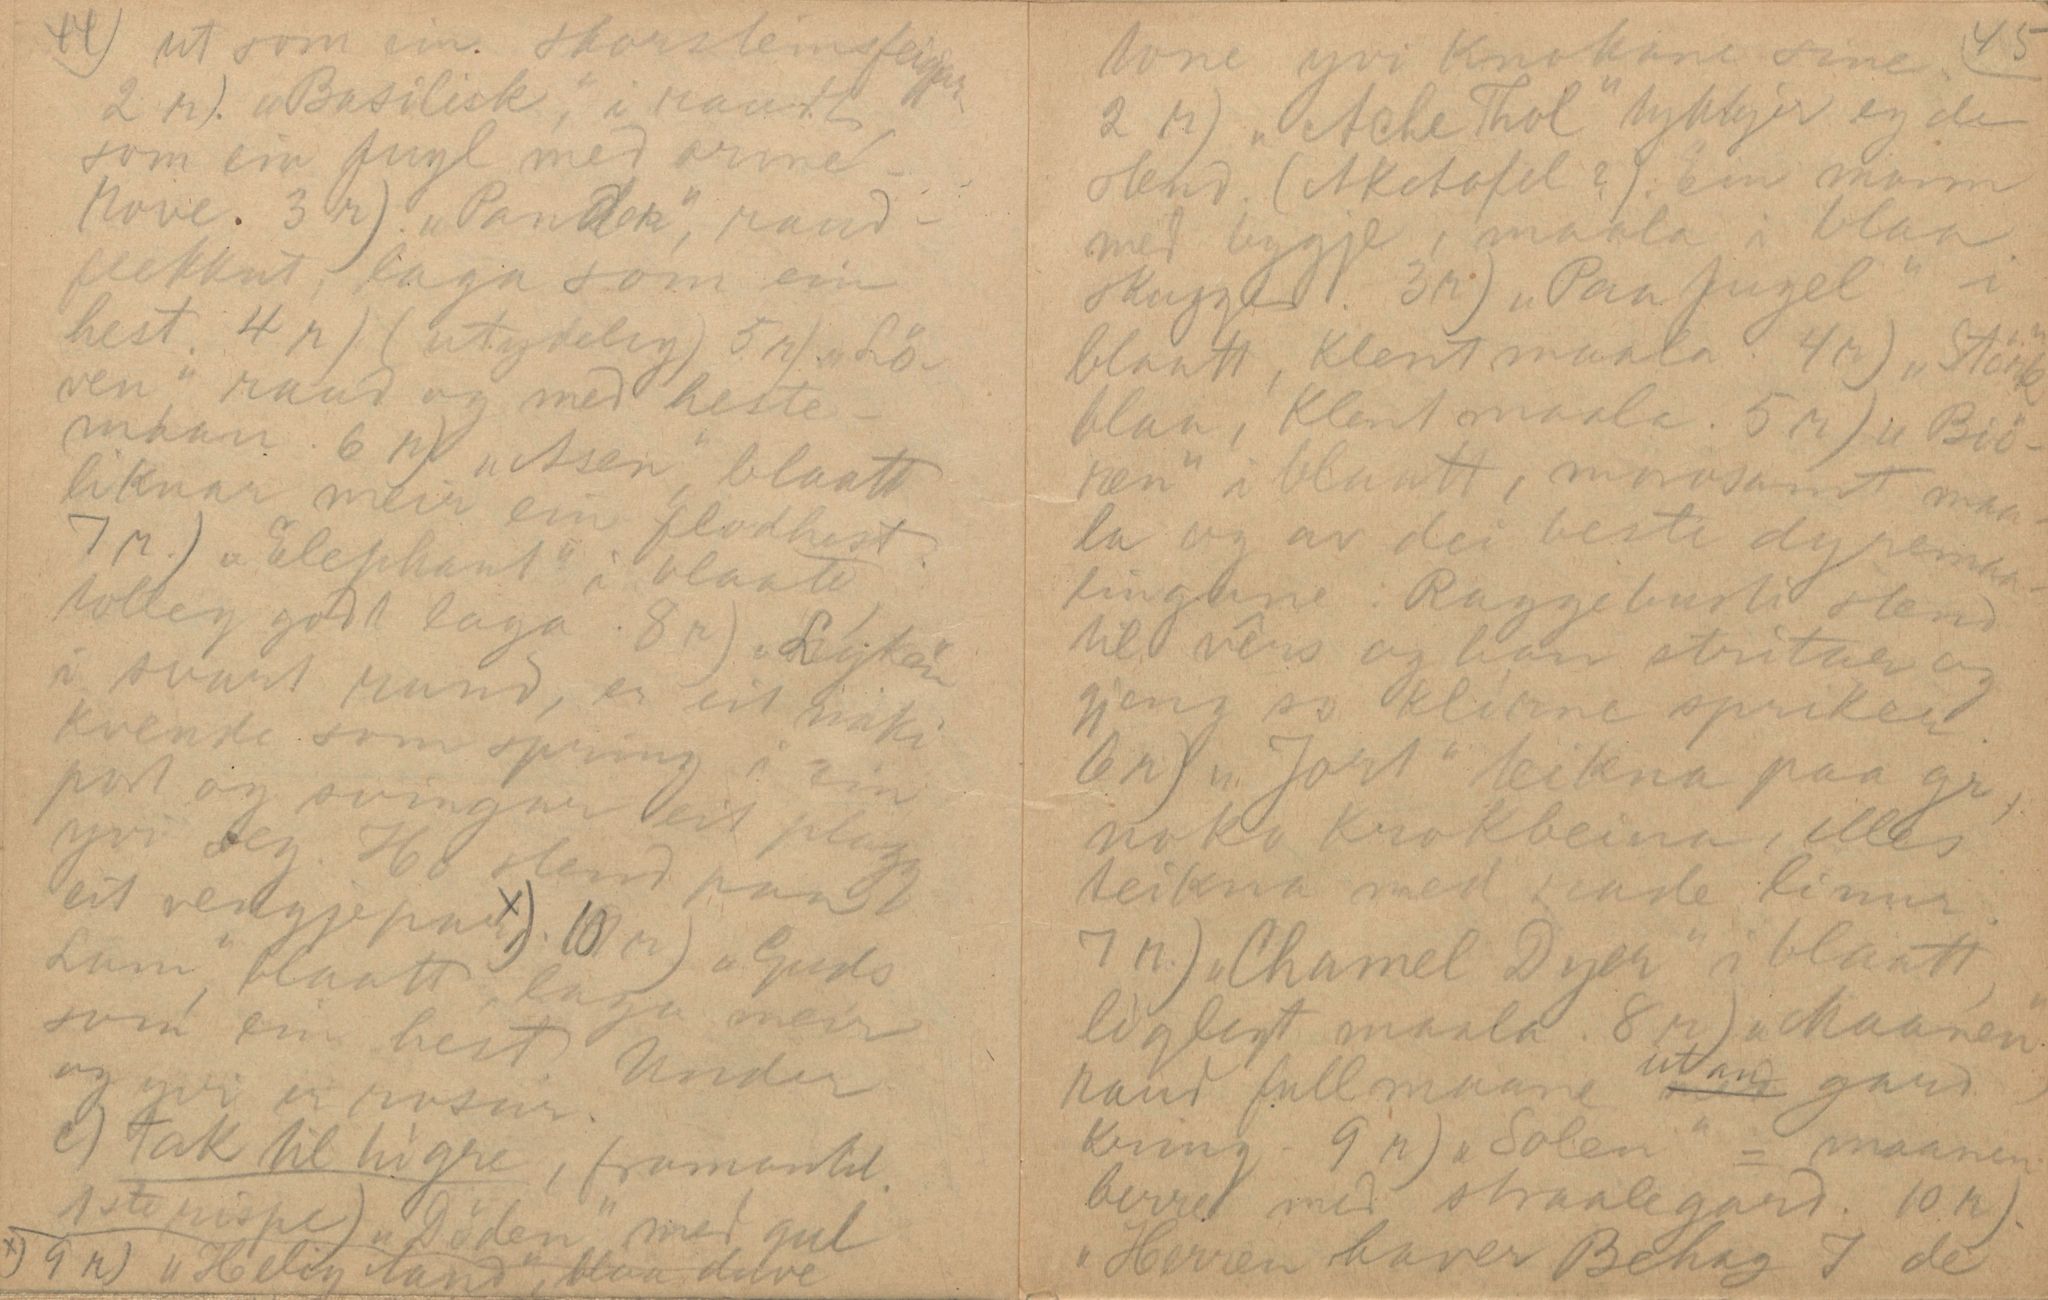 44) ut som ein skorsteinsfeigjar
2 r). „Basilisk", i raudt,
som ein fugl med orme-
rove. 3 r). „Pander", raud-
flekkut, laga som ein
hest. 4 r) (utydeleg) 5 r). „Lö-
ven" raud og med heste-
maan. 6 r) „Asen", blaatt
liknar meir ein flodhest.
7 r.) „Elephant" i blaatt,
tolleg godt laga. 8 r)
i svart rund, er eit naki
kvende som spring i ein
port og svingar eit plagg
yvi seg. Ho stend paa
eit vengjepar x). 10 r) „Guds
Lam", blaatt, laga meir
som ein hest. Under
og yvi er rosur.
c) Tak til högre, framantil.
1ste rispe) „Döden" med gul
x) 9 r) „Helig land", blaa duve
45
tone yvi knokane sine.
2 r) „Ache Thol" tykkjer eg de
stend. (Aketofel?). Ein mann
med hygje, maala i blaa
skugged. 3 r) „Paa fugel" i
blaatt, klent maala. 4 r) „Stork"
blaa, klent maala. 5 r) „Biö-
ren" i blaatt, morosamt maa-
la og av dei beste dyremaa-
lingane. Raggebusti stend
til vêrs og han stritar og
gjeng so klörne spriker.
6 r) „Jort" teikna paa gr,
noko krokbeina, elles
teikna med rade linur.
7 r.) „Chamel Dyer" i blaatt,
liglegt maala. 8 r) „Maanen"
raud fullmaane utan gard
kring. 9 r) „Solen" = maanen
berre med straalegard. 10 r).
„Herren haver Behag I de